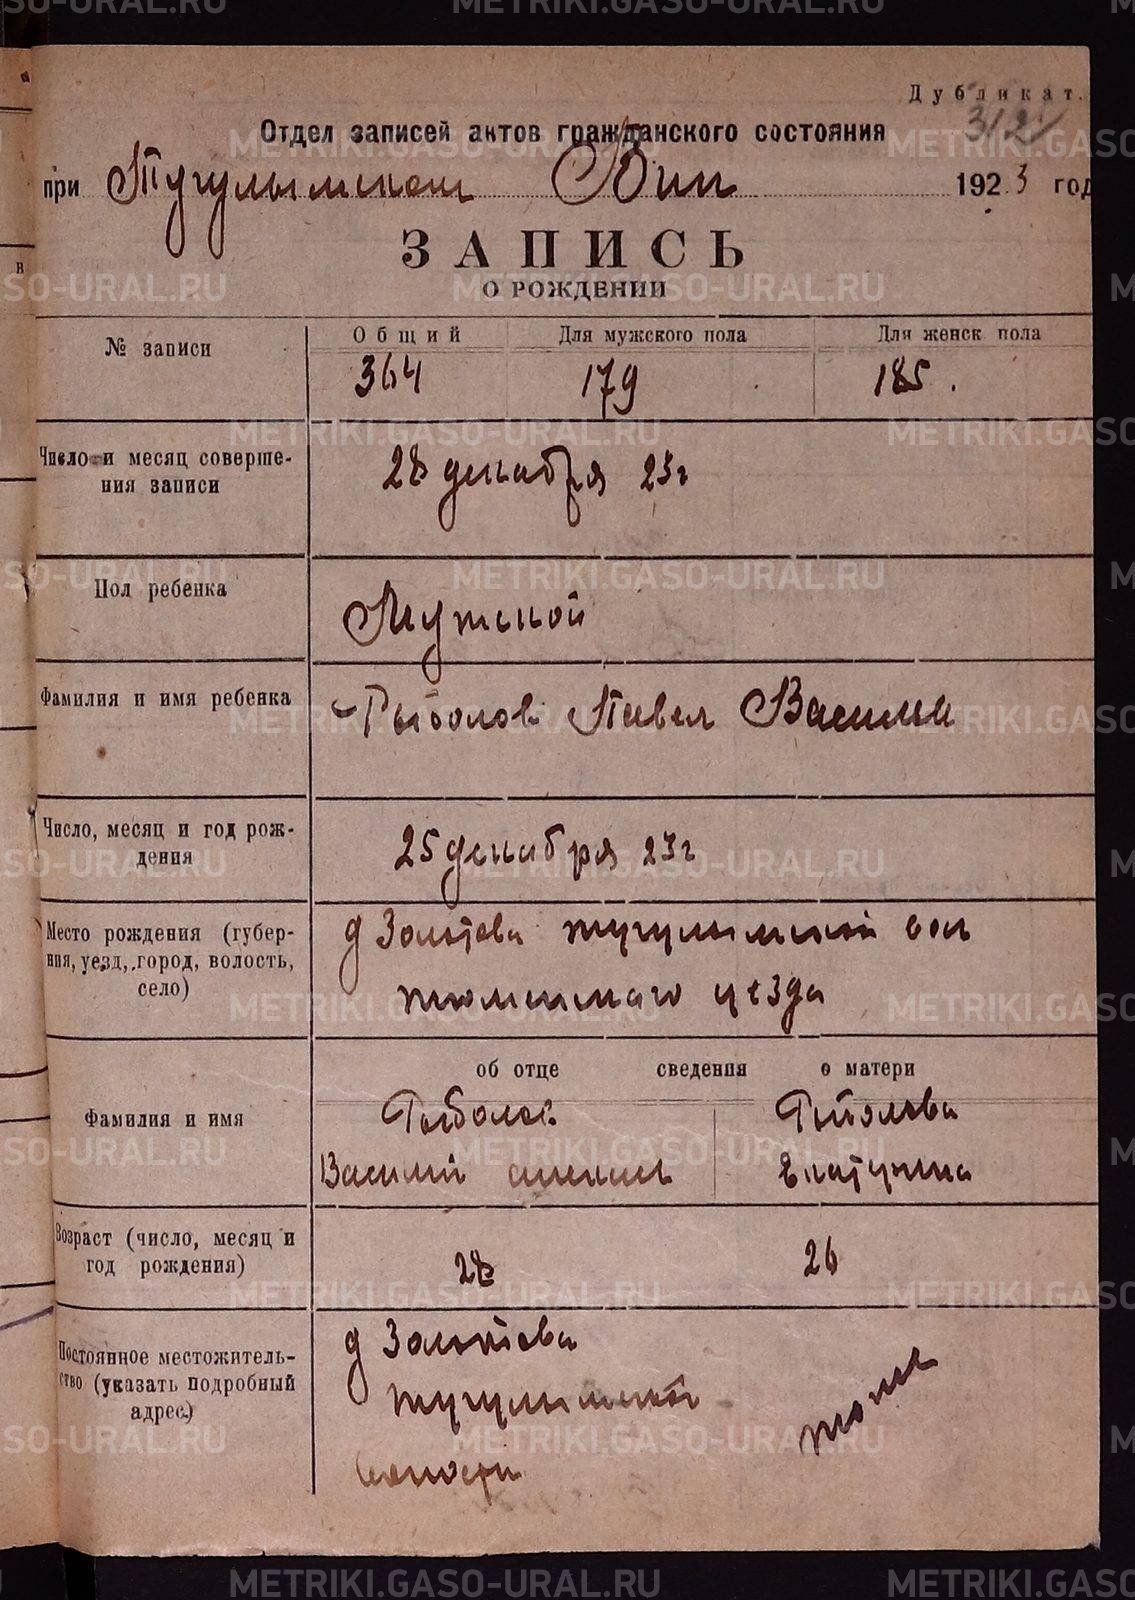 Дубликат.
312
Отдел записей актов гражданского состояния
при Тугулымском Вик 1923 год
ЗАПИСЬ
О РОЖДЕНИИ
№ записи
Общий
Для мужского пола
Для женск пола
364
179
185.
Число и месяц соверше-
ния записи
28 декабря 23 г
Пол ребенка
Мужской
Фамилия и имя ребенка
Рыболов Павел Васильи
Число, месяц и год рож-
дения
25 декабря 23 г
Место рождения (губер-
ния, уезд, город, волость,
село)
д Золотова тугулымской вол
тюменскаго уезда
об отце сведения о матери
Фамилия и имя
Рыболов
Василий
Рыболова
Екатерина
Возраст (число, месяц и
год рождения)
28
26
Постоянное местожитель-
ство (указать подробный
адрес)
д Золотова
тугулымской
волости
тоже
METRIKI.GASO-URAL.RU